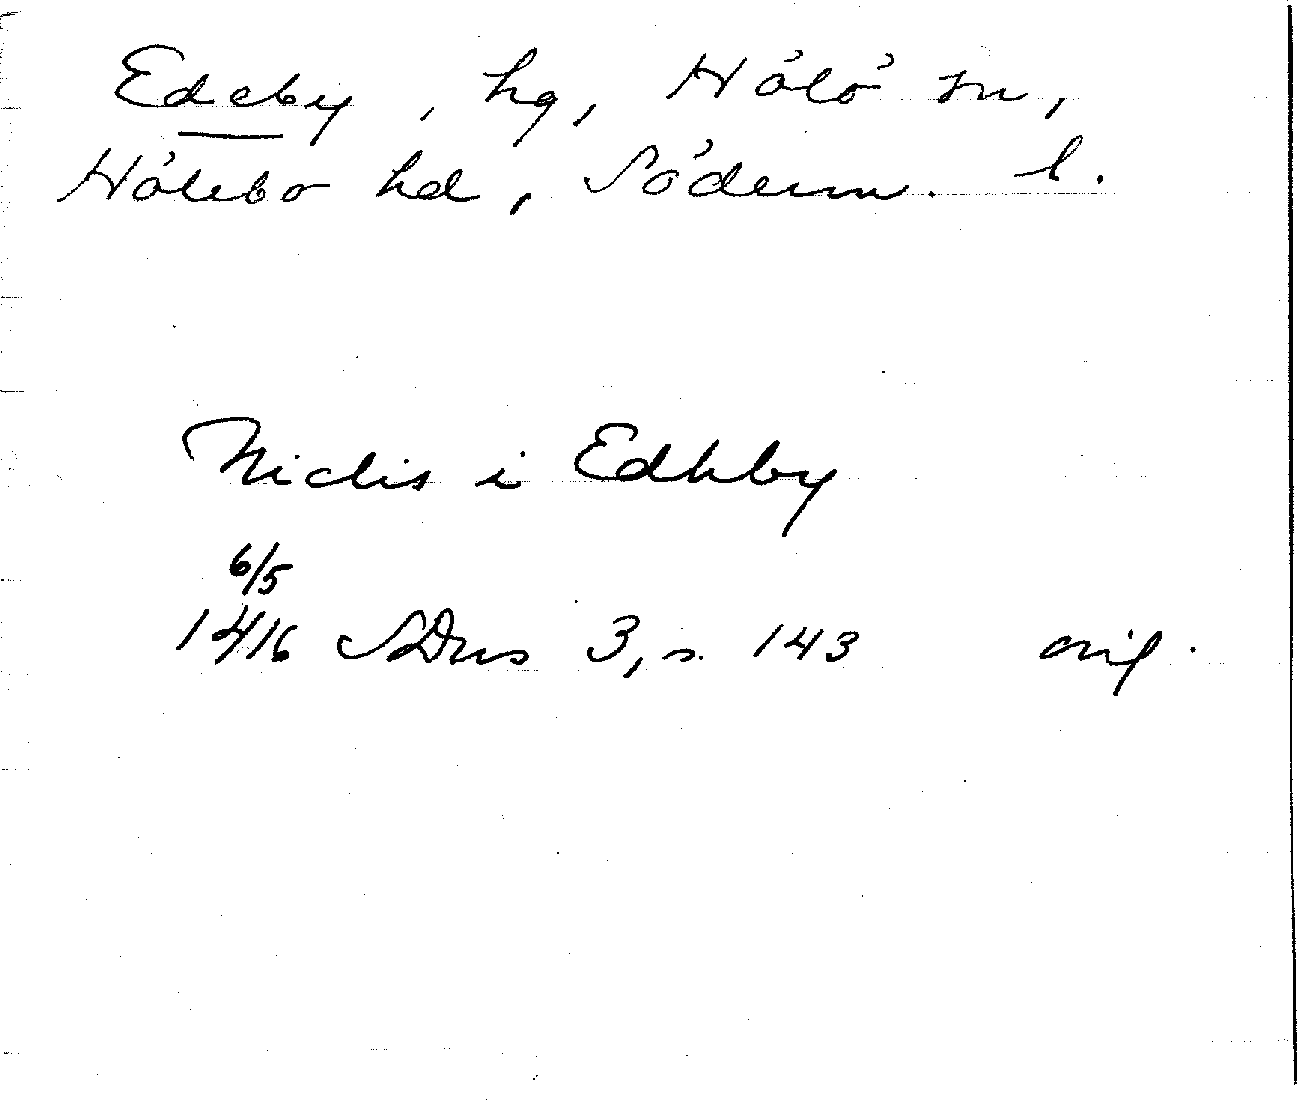 Edeby, hg, Hölö sn,
Hölebo hd, Söderm. l.
Niclis i Edhby
6/5
1416 SDns 3, s. 143 orig.